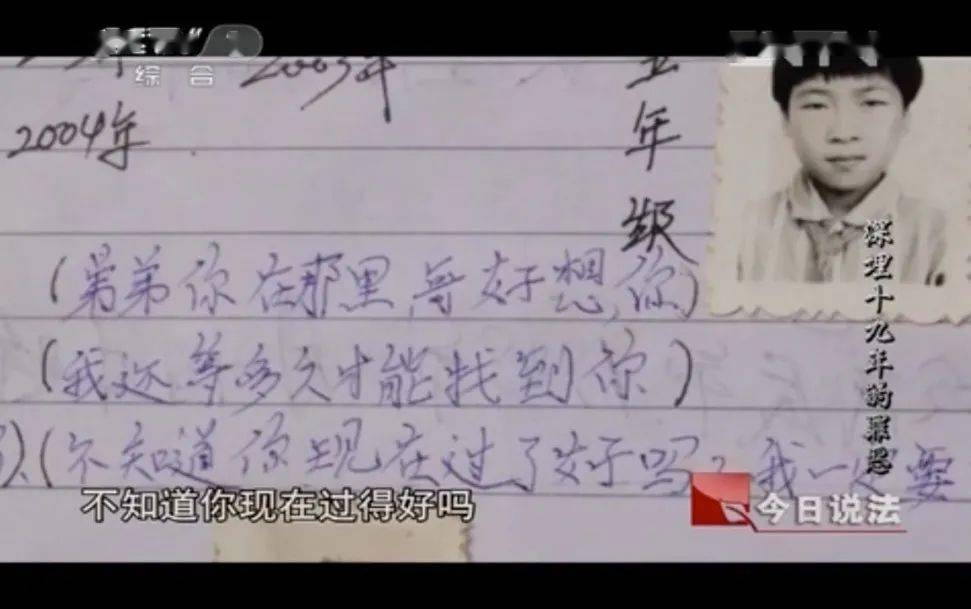 综合
2003年
2004年
五年级
(弟弟你在那里,哥好想,你)
(我还等多久才能找到你)
(不知道你现在过了好吗?我一定要
不知道你现在过得好吗
今日说法
深埋十九年的罪恶